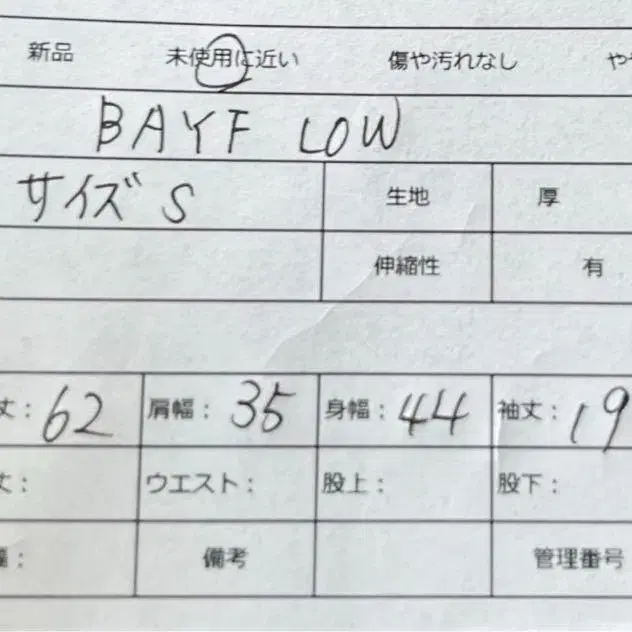 新品 未使用に近い 傷や汚れなし や
BAYFLOW
サイズ S 生地 厚
伸縮性 有
丈: 62 肩幅: 35 身幅: 44 袖丈: 19
丈: ウエスト: 股上: 股下:
幅: 備考 管理番号